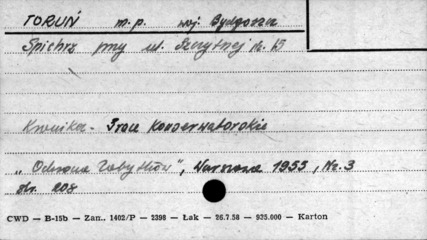 TORUŃ m.p. woj. Bydgoszcz
Spichrz przy ul. Szczytnej Nr. 15
Kronika - Prace Konserwatorskie
„Ochrona Zabytków", Warszawa 1955, Nr. 3
str. 208
CWD — B-15b — Zam. 1402/P — 2398 — Łak — 26.7.58 — 935.000 — Karton